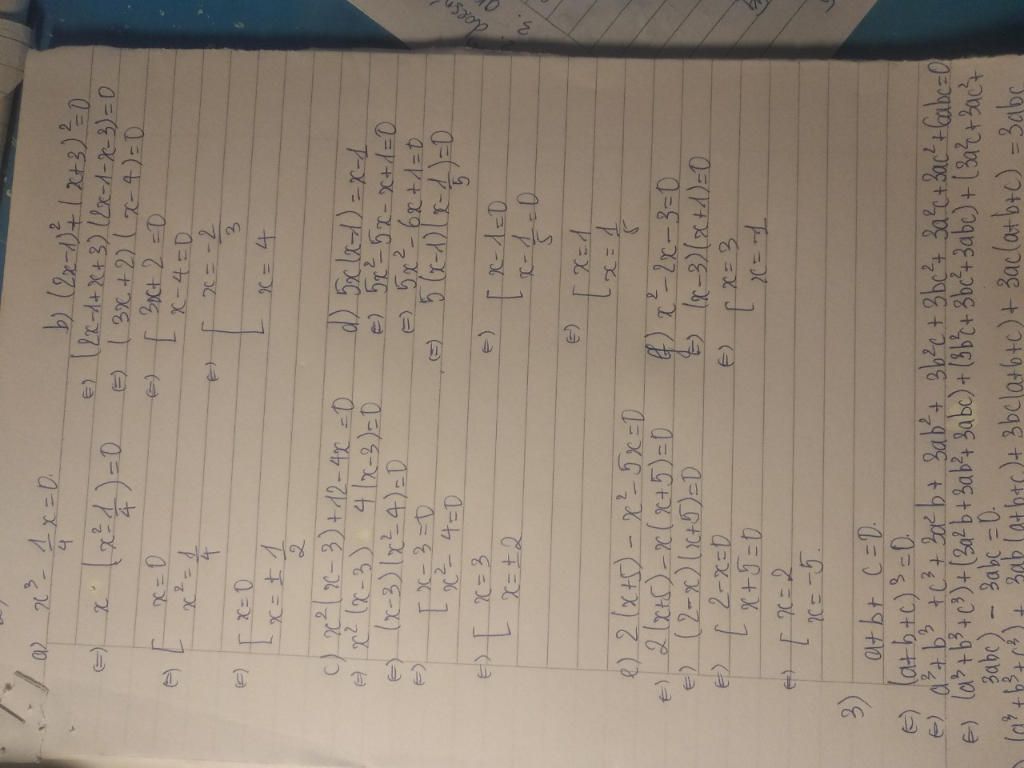 a) x³ - 1/4 x = 0.
(=) x (x² - 1/4) = 0
(=) [ x = 0
x² = 1/4
(=) [ x = 0
x = ± 1/2
b) (2x-1)² + (x+3)² = 0
(=) (2x-1+x+3)(2x-1-x-3)=0
(=) (3x+2)(x-4)=0
(=) [ 3x+2=0
x-4=0
(=) [ x = -2/3
x = 4
c) x²(x-3)+12-4x=0
(=) x²(x-3) 4(x-3)=0
(=) (x-3)(x²-4)=0
(=) [ x-3=0
x²-4=0
(=) [ x=3
x=±2
d) 5x(x-1)=x-1
(=) 5x²-5x-x+1=0
(=) 5x²-6x+1=0
(=) 5(x-1)(x-1/5)=0
(=) [ x-1=0
x-1/5=0
(=) [ x=1
x=1/5
e) 2(x+5)-x²-5x=0
(=) 2(x+5)-x(x+5)=0
(=) (2-x)(x+5)=0
(=) [ 2-x=0
x+5=0
(=) [ x=2
x=-5.
f) x²-2x-3=0
(=) (x-3)(x+1)=0
(=) [ x=3
x=-1
3) a+b+c=0.
(=) (a+b+c)³=0.
(=) a³+b³+c³+3a²b+3ab²+3b²c+3bc²+3a²c+3ac²+6abc=0
(=) (a³+b³+c³)+(3a²b+3ab²+3abc)+(3b²c+3bc²+3abc)+(3a²c+3ac²+
3abc)-3abc=0.
(a³+b³+c³)+3ab(a+b+c)+3bc(a+b+c)+3ac(a+b+c)=3abc